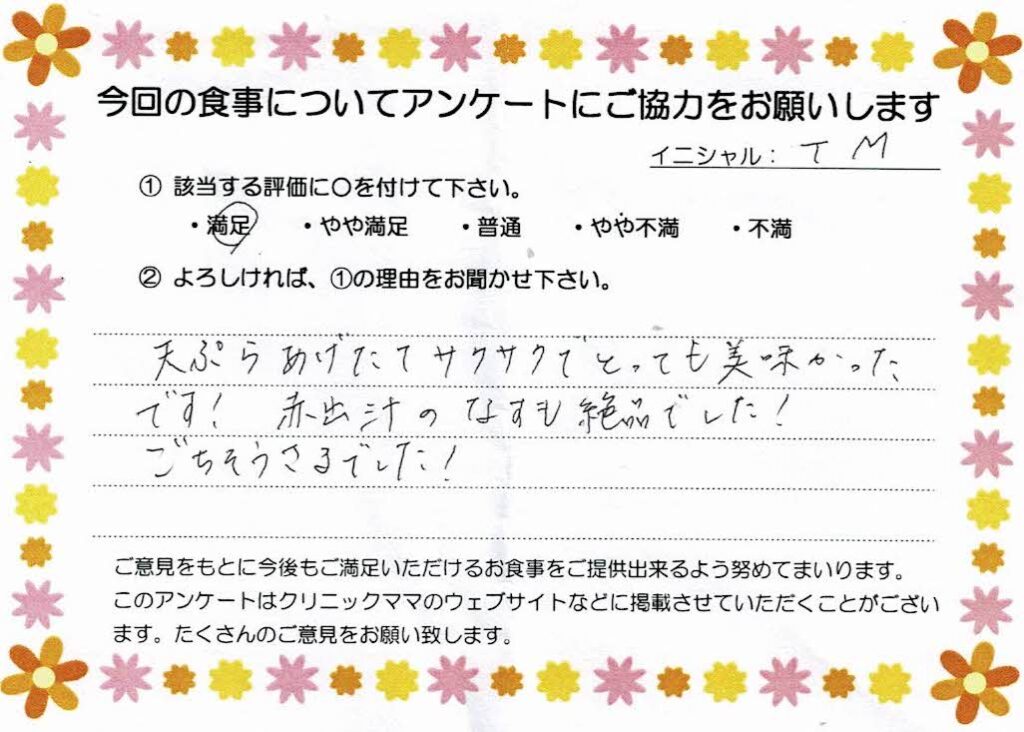 今回の食事についてアンケートにご協力をお願いします
イニシャル： T M
① 該当する評価に〇を付けて下さい。
・満足 ・やや満足 ・普通 ・やや不満 ・不満
② よろしければ、①の理由をお聞かせ下さい。
天ぷらあげたてサクサクでとっても美味かった
です! 赤出汁のなすも絶品でした!
ごちそうさまでした!
ご意見をもとに今後もご満足いただけるお食事をご提供出来るよう努めてまいります。
このアンケートはクリニックママのウェブサイトなどに掲載させていただくことがござい
ます。たくさんのご意見をお願い致します。